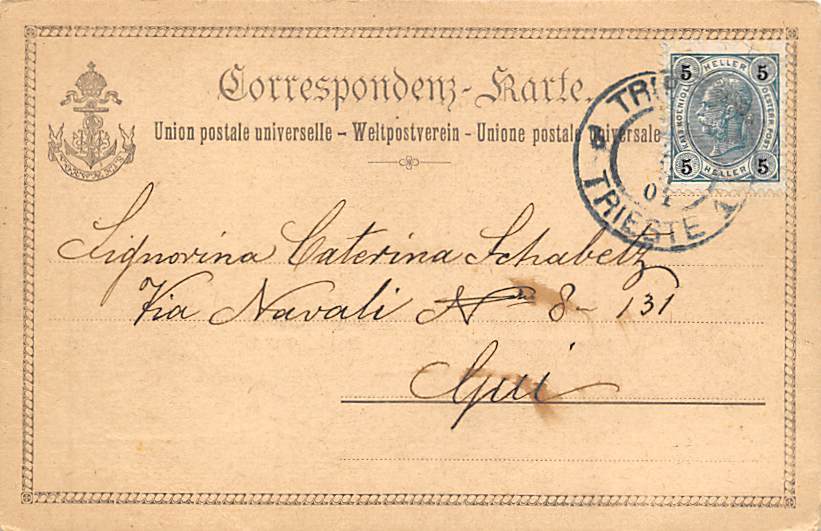 Correspondenz-Karte.
Union postale universelle – Weltpostverein – Unione postale universale
5 HELLER 5
5 HELLER 5
TRIESTE 1
01
Signorina Caterina Schabelz
Via Navali No 8 – 131
Qui